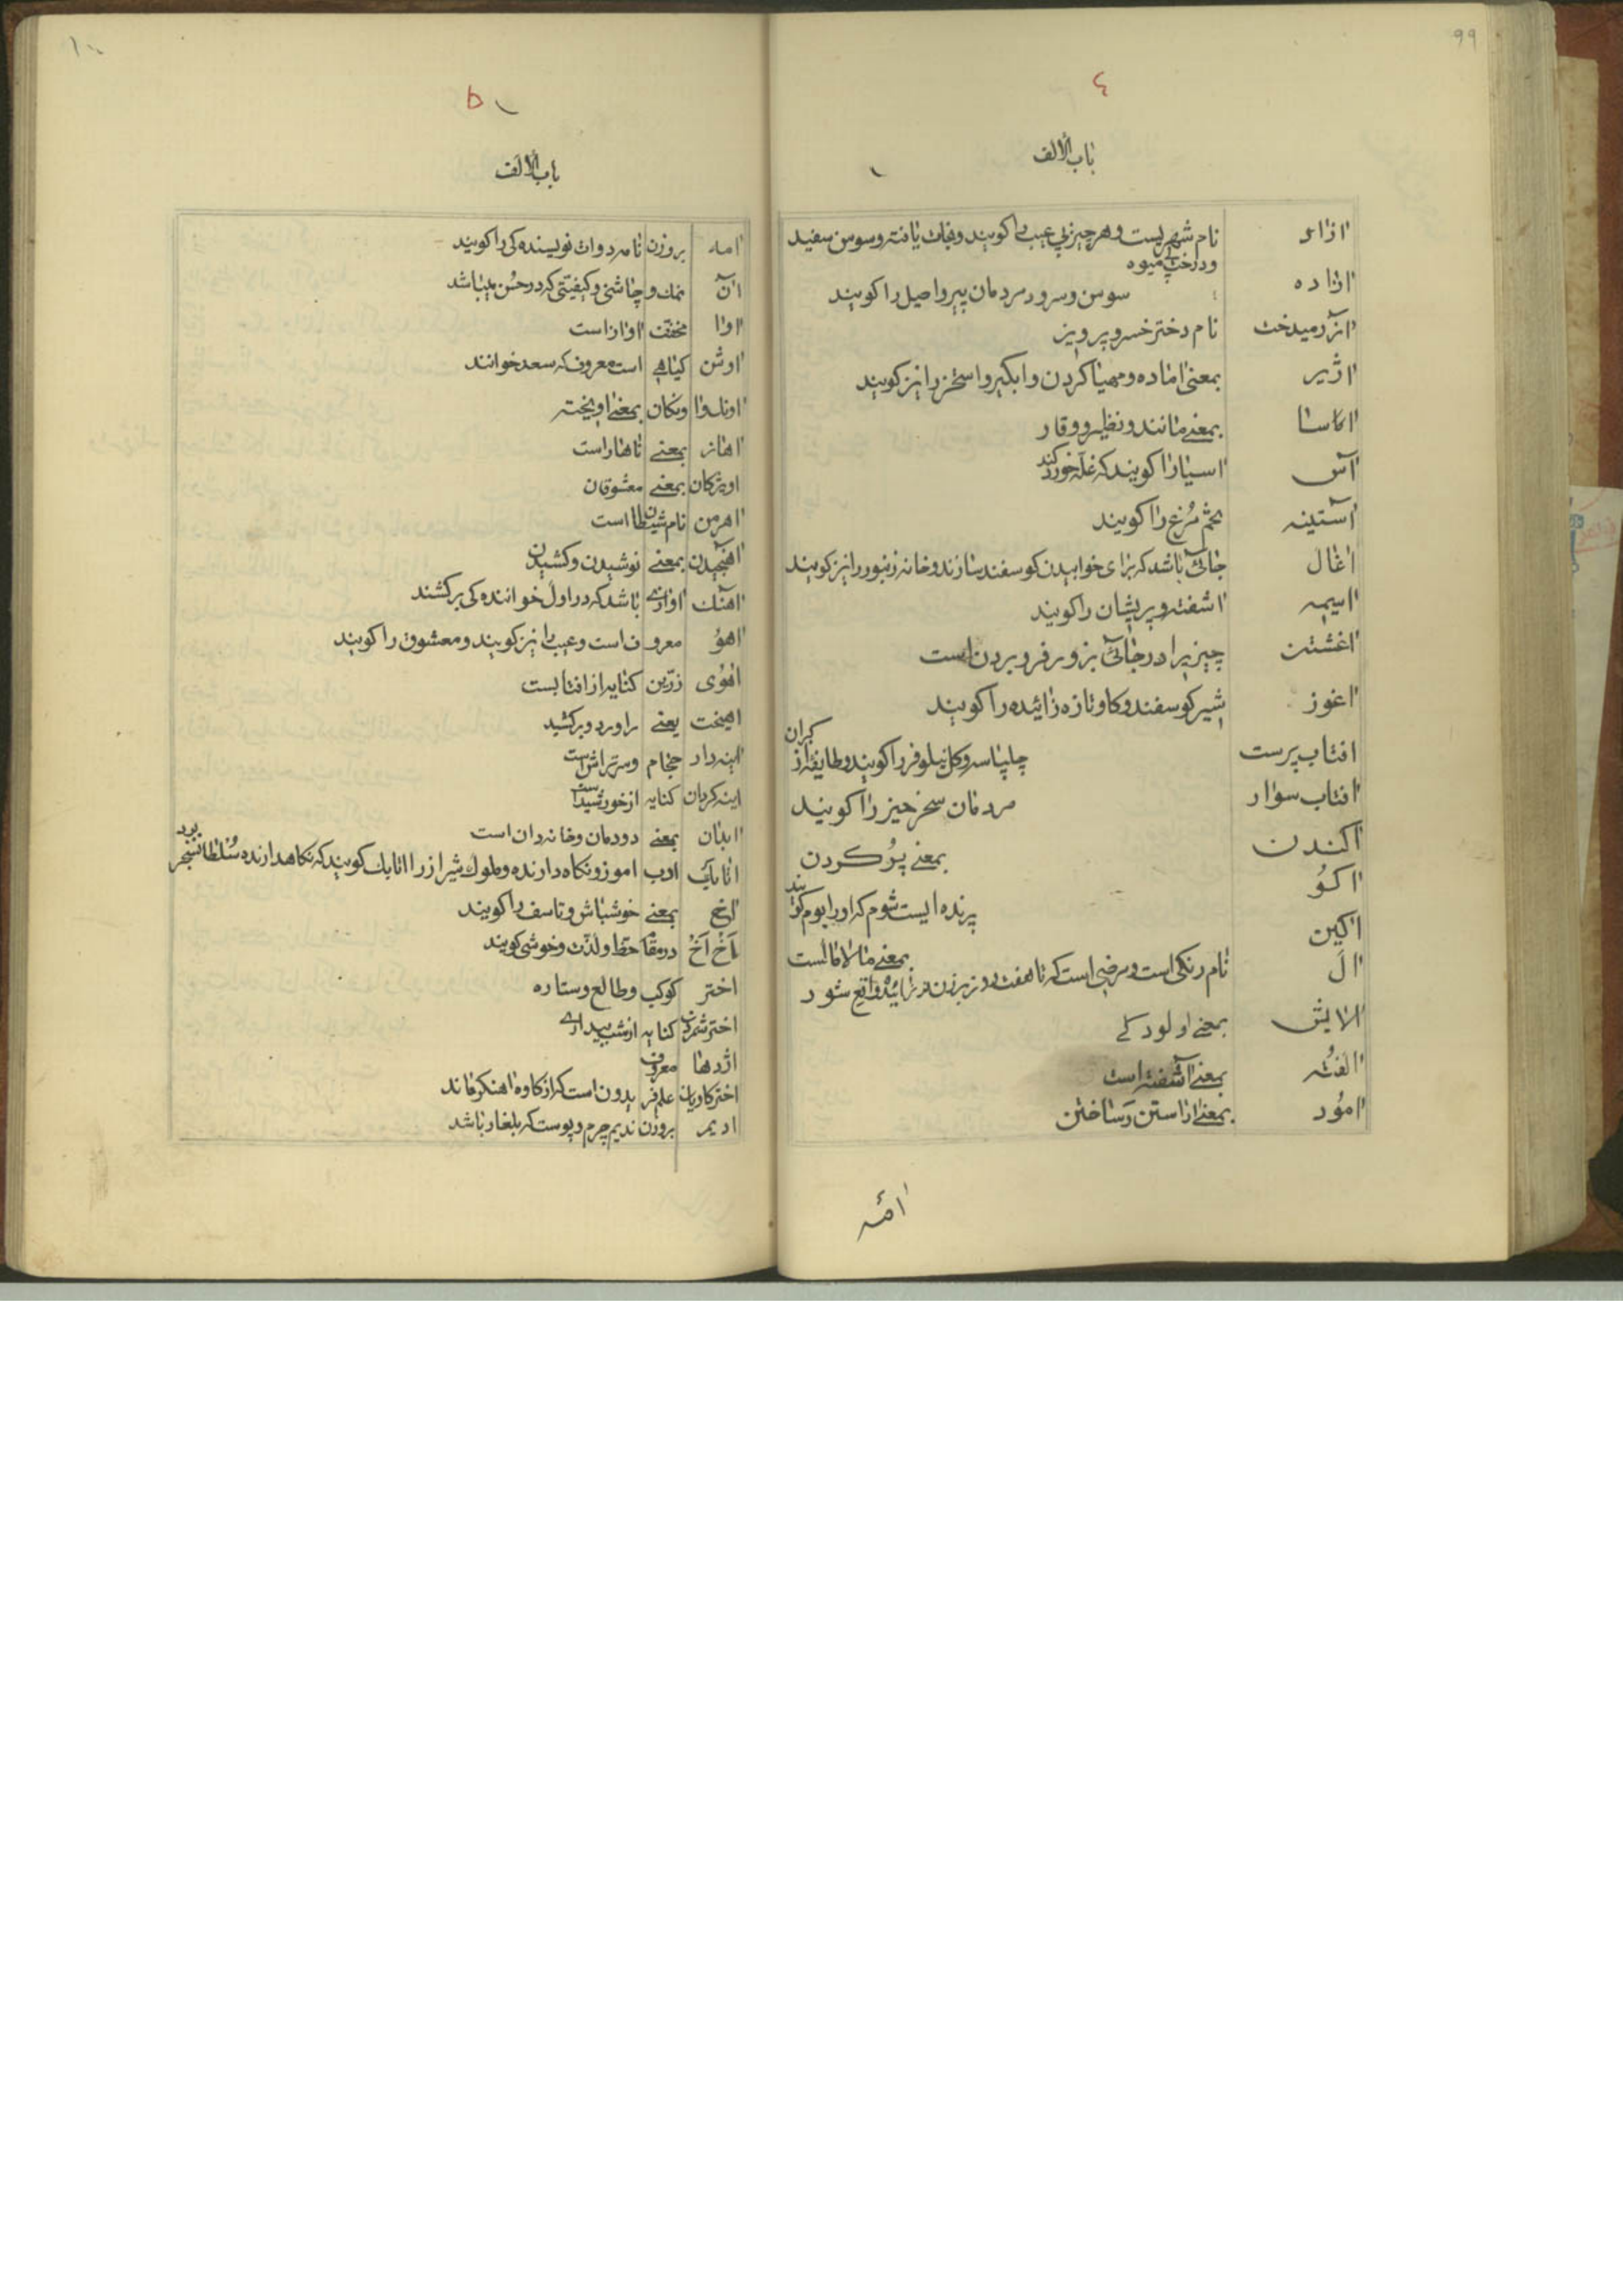 ۹۹
٤
باب الألف
ازاد نام شهریست و هر چیز بی عیب را کویند و نجات یافته و سوسن سفید
و درخت بی میوه
ازاده سوسن و سرو و مردمان پیر و اصیل را کویند
ازرمیدخت نام دختر خسرو پرویز
اژیر بمعنی اماده و مهیا کردن و ابکیر و استخر را نیز کویند
اساسا بمعنی مانند و نظیر و وقار
آس اسیا را کویند که غله خورد کند
آستینه تخم مرغ را کویند
اغال جائی باشد که برای خوابیدن کوسفند سازند و خانه زنبور را نیز کویند
اسیمه اشفته و پریشان را کویند
اغشتن چیزیرا در جائی بزور فرو بردن است
اغوز شیر کوسفند و کاو تازه زائیده را کویند
افتاب پرست چلپاسه و کل نیلوفر را کویند و طایفه از کبران
افتاب سوار مردمان سحرخیز را کویند
اکندن بمعنی پُر کردن
اکو پرنده ایست شوم که او را بوم کویند
اکین بمعنی مالامالست
ال نام رنکی است و مرضی است که تا هفت روز بر زن نو زائیده واقع شود
الایش بمعنی الودکی
الفته بمعنی آشفته است
امُود بمعنی اراستن و ساختن
امه
۱۰۰
۵
باب الألف
امه بروزن نامه دوات نویسنده کی را کویند
آن نمک و چاشنی و کیفیتی که در حُسن میباشد
اوا مخفف اواز است
اوشن کیاهی است معروف که سعد خوانند
اونک و اونکان بمعنی اویخته
اهار بمعنی ناهار است
اویژکان بمعنی معشوقان
اهرمن نام شیطان است
اهنجیدن بمعنی نوشیدن و کشیدن
اهنک اوازی باشد که در اول خواننده کی برکشند
اهو معروف است و عیب را نیز کویند و معشوق را کویند
اهوی زرین کنایه از افتابست
اهیخت یعنی براورد و برکشید
اینه دار حجام و سرتراش است
اینه کردان کنایه از خورشید است
ابدان بمعنی دودمان و خانه دان است
اتابک ادب اموز و نکاه دارنده و ملوک شیراز را اتابک کویند که نکاهدارنده سُلطان سنجر بود
اخ بمعنی خوشباش و تاسف را کویند
اَخ اَخ در مقام حظ و لذت و خوشی کویند
اختر کوکب و طالع و ستاره
اختر شمردن کنایه از شب بیداری
اژدها معروف
اختر کاویان علم فریدون است که از کاوه اهنکر ماند
ادیم بروزن ندیم چرم و پوست که بلغار باشد